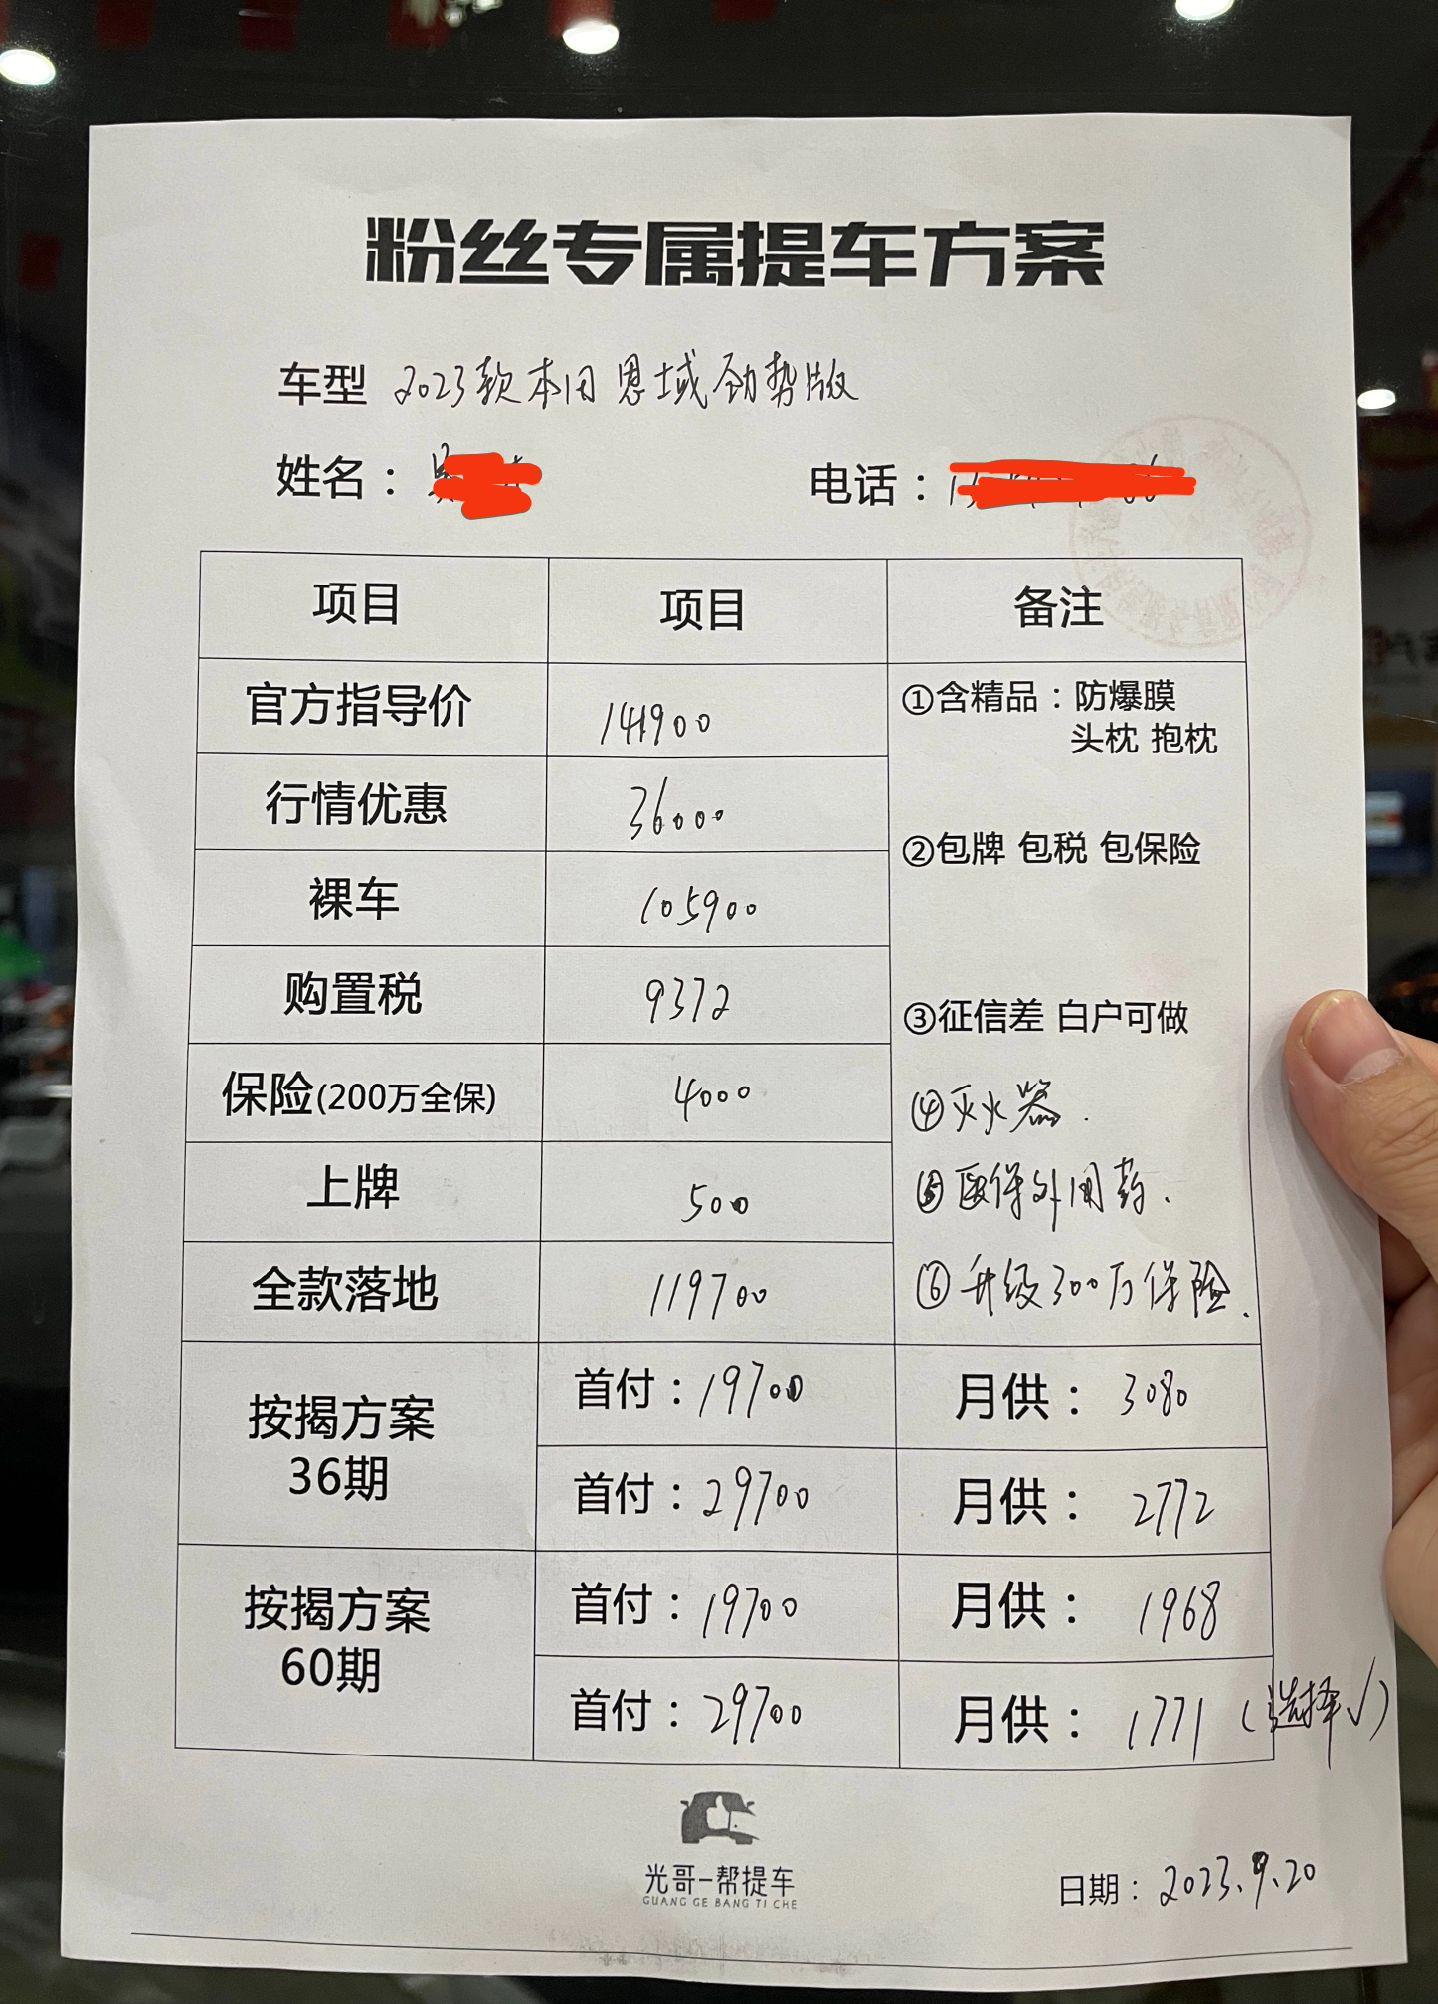 粉丝专属提车方案
车型 2023款本田思域劲势版
姓名：吴
电话：
项目 项目 备注
官方指导价 141900
①含精品：防爆膜
头枕 抱枕
行情优惠 36000
②包牌 包税 包保险
裸车 105900
购置税 9372
③征信差 白户可做
保险(200万全保) 4000
④灭火器.
上牌 500
⑤医保外用药.
全款落地 119700
⑥升级300万保险.
按揭方案
36期
首付：19700 月供：3080
首付：29700 月供：2772
按揭方案
60期
首付：19700 月供：1968
首付：29700 月供：1771 (选择√)
光哥-帮提车
GUANG GE BANG TI CHE
日期：2023.9.20